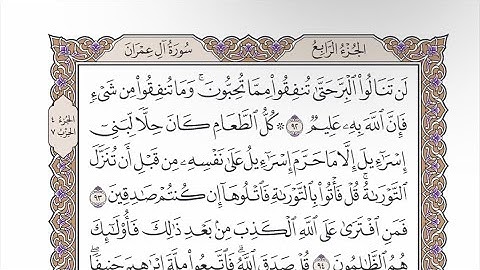 سُورَةُ آلِ عِمْرَانَ
الجُزْءُ الرَّابِعُ
لَن تَنَالُوا۟ ٱلْبِرَّ حَتَّىٰ تُنفِقُوا۟ مِمَّا تُحِبُّونَ ۚ وَمَا تُنفِقُوا۟ مِن شَىْءٍ
فَإِنَّ ٱللَّهَ بِهِۦ عَلِيمٌ ٩٢ ۞ كُلُّ ٱلطَّعَامِ كَانَ حِلًّا لِّبَنِىٓ
إِسْرَٰٓءِيلَ إِلَّا مَا حَرَّمَ إِسْرَٰٓءِيلُ عَلَىٰ نَفْسِهِۦ مِن قَبْلِ أَن تُنَزَّلَ
ٱلتَّوْرَىٰةُ ۗ قُلْ فَأْتُوا۟ بِٱلتَّوْرَىٰةِ فَٱتْلُوهَآ إِن كُنتُمْ صَٰدِقِينَ ٩٣
فَمَنِ ٱفْتَرَىٰ عَلَى ٱللَّهِ ٱلْكَذِبَ مِنۢ بَعْدِ ذَٰلِكَ فَأُو۟لَٰٓئِكَ
هُمُ ٱلظَّٰلِمُونَ ٩٤ قُلْ صَدَقَ ٱللَّهُ ۗ فَٱتَّبِعُوا۟ مِلَّةَ إِبْرَٰهِيمَ حَنِيفًا
الجزء ٤
الحزب ٧